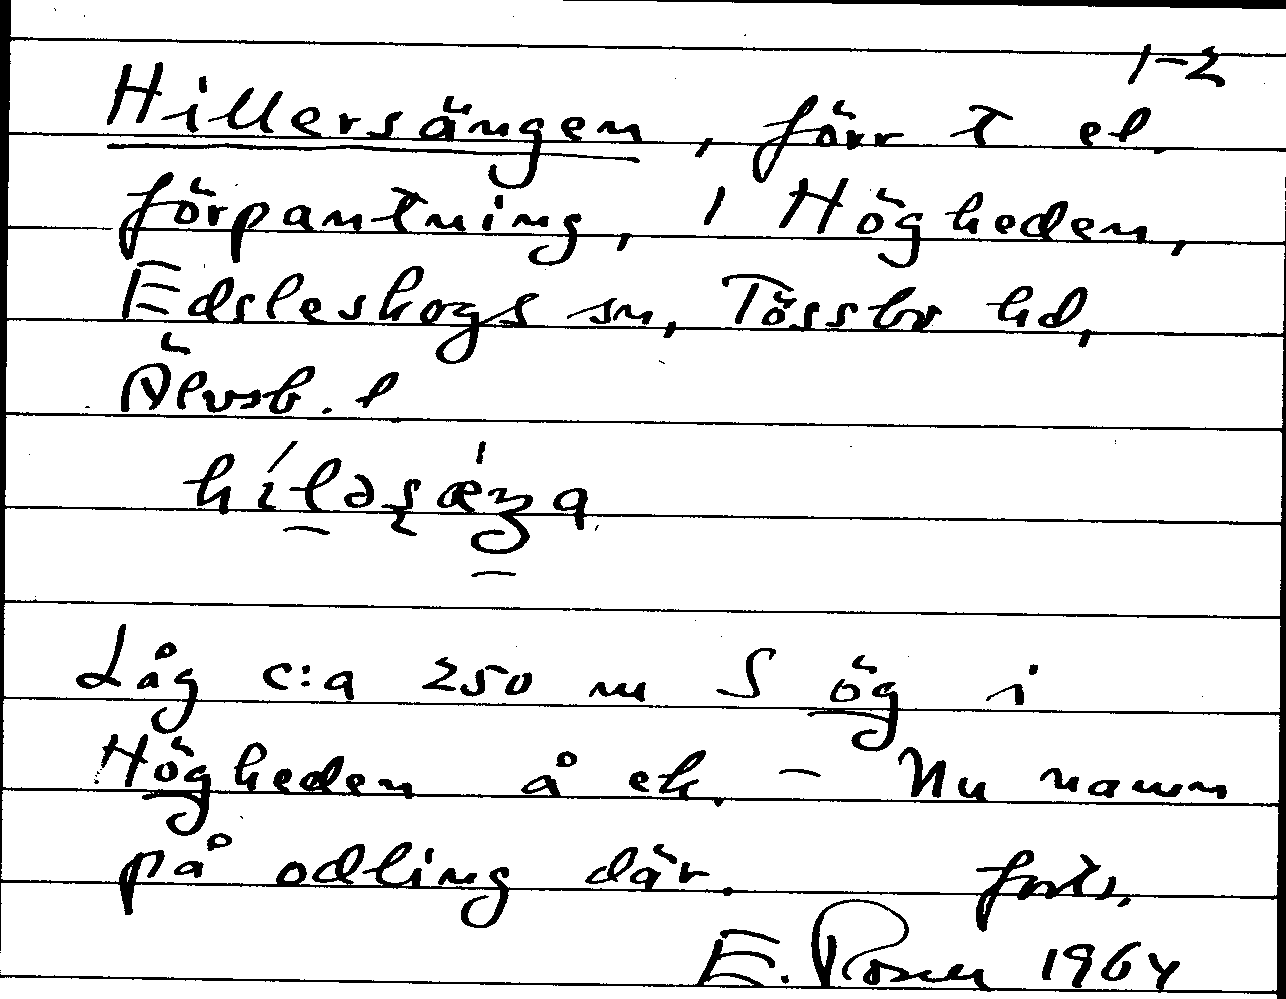 1-2
Hillersängen, förr t el.
förpantning, i Högheden,
Edsleskogs sn, Tössbo hd,
Älvsb. l
Låg c:a 250 m S ög i
Högheden å ek. - Nu namn
på odling där. forts.
E. Rosen 1964